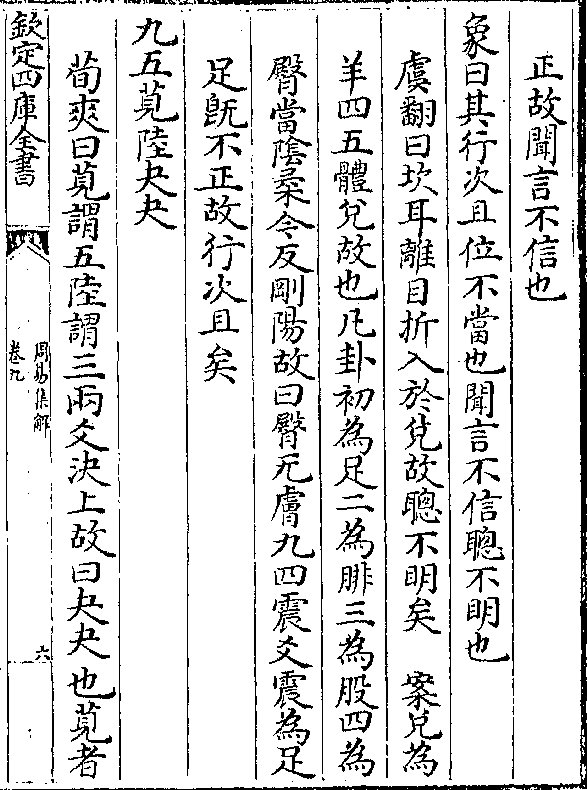 正故聞言不信也
象曰其行次且位不當也聞言不信聰不明也
虞翻曰坎耳離目折入於兌故聰不明矣　案兌為
羊四五體兌故也凡卦初為足二為腓三為股四為
臀當隂柔今反剛陽故曰臀无膚九四震爻震為足
足旣不正故行次且矣
九五莧陸夬夬
荀爽曰莧謂五陸謂三兩爻決上故曰夬夬也莧者
欽定四庫全書
周易集解
卷九
六